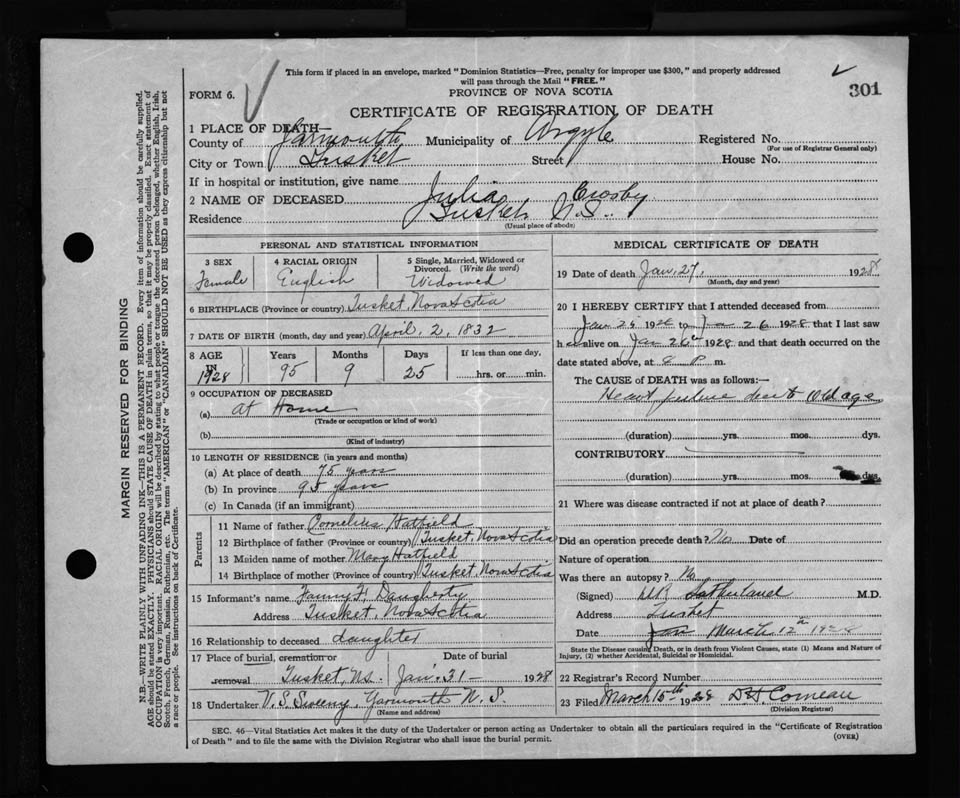 This form if placed in an envelope, marked "Dominion Statistics—Free, penalty for improper use $300," and properly addressed
will pass through the Mail "FREE."
301
FORM 6.
PROVINCE OF NOVA SCOTIA
CERTIFICATE OF REGISTRATION OF DEATH
1 PLACE OF DEATH—
County of Yarmouth Municipality of Argyle Registered No.
(For use of Registrar General only)
City or Town Tusket Street House No.
If in hospital or institution, give name
2 NAME OF DECEASED Julia Crosby
Residence Tusket N.S.
(Usual place of abode)
PERSONAL AND STATISTICAL INFORMATION
3 SEX
Female
4 RACIAL ORIGIN
English
5 Single, Married, Widowed or
Divorced. (Write the word)
Widowed
6 BIRTHPLACE (Province or country) Tusket, Nova Scotia
7 DATE OF BIRTH (month, day and year) April, 2, 1832
8 AGE Years Months Days If less than one day,
1928 95 9 25 hrs. or min.
9 OCCUPATION OF DECEASED
(a) at Home
(Trade or occupation or kind of work)
(b)
(Kind of industry)
10 LENGTH OF RESIDENCE (in years and months)
(a) At place of death 75 years
(b) In province 95 years
(c) In Canada (if an immigrant)
Parents
11 Name of father Cornelius Hatfield
12 Birthplace of father (Province or country) Tusket, Nova Scotia
13 Maiden name of mother Mary Hatfield
14 Birthplace of mother (Province or country) Tusket Nova Scotia
15 Informant's name Fanny F. Daugherty
Address Tusket, Nova Scotia
16 Relationship to deceased daughter
17 Place of burial, cremation or Date of burial
removal Tusket, N.S. Jan. 31— 1928
18 Undertaker V. S. Sweeny, Yarmouth N. S.
(Name and address)
MEDICAL CERTIFICATE OF DEATH
19 Date of death Jan, 27, 1928
(Month, day and year)
20 I HEREBY CERTIFY that I attended deceased from
Jan 25 192 to Jan 26 1928 that I last saw
h alive on Jan 26th 1928 and that death occurred on the
date stated above, at P. m.
The CAUSE of DEATH was as follows:—
Heart failure due to Old age
(duration) yrs. mos. dys.
CONTRIBUTORY
(duration) yrs. mos. dys.
21 Where was disease contracted if not at place of death?
Did an operation precede death? No Date of
Nature of operation
Was there an autopsy? No
(Signed) Sutherland M.D.
Address Tusket
Date Jan March 12th 1928
State the Disease causing Death, or in death from Violent Causes, state (1) Means and Nature of
Injury, (2) whether Accidental, Suicidal or Homicidal.
22 Registrar's Record Number
23 Filed March 15th 1928 Comeau
(Division Registrar)
SEC. 46—Vital Statistics Act makes it the duty of the Undertaker or person acting as Undertaker to obtain all the particulars required in the "Certificate of Registration
of Death" and to file the same with the Division Registrar who shall issue the burial permit.
(OVER)
MARGIN RESERVED FOR BINDING
N.B.—WRITE PLAINLY WITH UNFADING INK—THIS IS A PERMANENT RECORD. Every item of information should be carefully supplied.
AGE should be stated EXACTLY. PHYSICIANS should STATE CAUSE OF DEATH in plain terms, so that it may be properly classified. Exact statement of
OCCUPATION is very important. RACIAL ORIGIN will be described by stating to what people or tongue the deceased person belonged, whether English, Irish,
Scotch, French, German, Russian, Ruthenian, etc. The terms "AMERICAN" or "CANADIAN" SHOULD NOT BE USED as they express citizenship but not
a race or people. See instructions on back of Certificate.